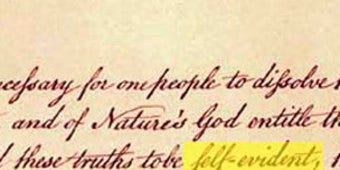 ecеſsary for one people to diſsolve
and of Nature's God entitle th
these truths to be ſelf-evident,